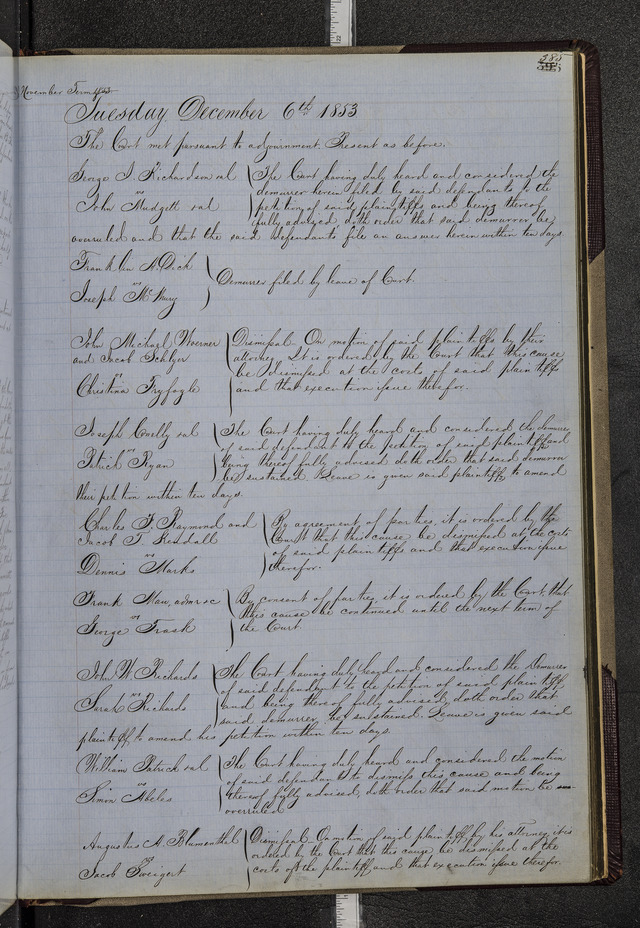 November Term 1853
Tuesday December 6th 1853
The Court met persuant to adjournment. Present as before.
George I. Richardson et al
vs
John Mudgett et al
The Court having duly heard and considered the
demurrer herein filed by said defendants to the
petition of said plaintiffs and being thereof
fully advised, doth order that said demurrer be
overruled and that the said defendants file an answer herein within ten days
Franklin A. Dick
vs
Joseph McMury
Demurrer filed by leave of Court.
John Michael Woerner
and Jacob
vs
Christina
Dismissal. On motion of said plaintiffs by their
attorney It is ordered by the Court that this cause
be dismissed at the costs of said plaintiffs
and that execution issue therefor.
Joseph Conelly et al
vs
Patrick Ryan
The Court having duly heard and considered the demurrer
of said defendant to the petition of said plaintiff and
being thereof fully advised doth order that said demurrer
be sustained. Leave is given said plaintiff to amend
their petition within ten days.
Charles F. Raymond and
Jacob T. Kendall
vs
Dennis Marks
By agreement of parties, it is ordered by the
Court that this cause be dismissed at the costs
of said plaintiffs and that execution issue
therefor.
Frank admr &c
vs
George Trask
By consent of parties it is ordered by the Court, that
this cause be continued until the next term of
the Court.
John W. Richards
vs
Sarah Richards
The Court having duly heard and considered the Demurrer
of said defendant to the petition of said plaintiff
and being thereof fully advised, doth order that
said demurrer be sustained. Leave is given said
plaintiff to amend his petition within ten days.
William Patrick et al
vs
Simon Abeles
The Court having duly heard and considered the motion
of said defendant to dismiss this cause and being
thereof fully advised, doth order that said motion be
overruled
Augustus A. Blumenthal
vs
Jacob Sweigert
Dismissal. On motion of said plaintiff by his attorney, it is
ordered by the Court that this cause be dismissed at the
costs of the plaintiff and that execution issue therefor.